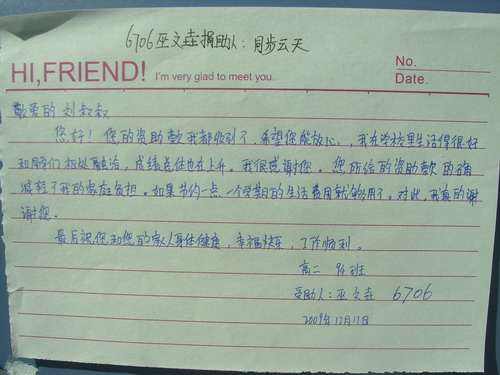 6706 巫文垚捐助人: 同步云天
No.
HI,FRIEND! I'm very glad to meet you.
Date.
敬爱的刘叔叔
您好!您的资助款我都收到了,希望您能放心,我在学校里生活得很好
和同学们相处融洽,成绩总体也在上升。我很感谢您。您所给的资助款的确
减轻了我的家庭负担。如果节约一点,一个学期的生活费用就够用了。对此,我真的谢
谢您。
最后祝您和您的家人身体健康,幸福快乐,工作顺利。
高二 94班
受助人:巫文垚 6706
2009年12月11日